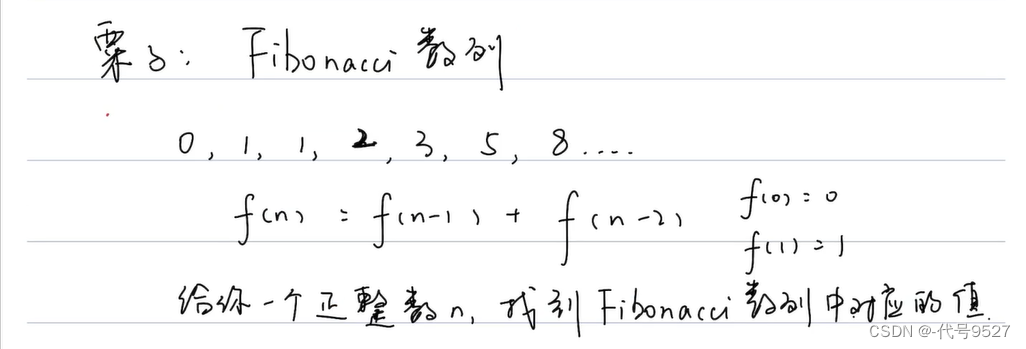 栗子: Fibonacci 数列
0, 1, 1, 2, 3, 5, 8 ....
f(n) = f(n-1) + f(n-2) f(0) = 0
f(1) = 1
给你一个正整数n, 找到 Fibonacci 数列中对应的值.
CSDN @-代号9527